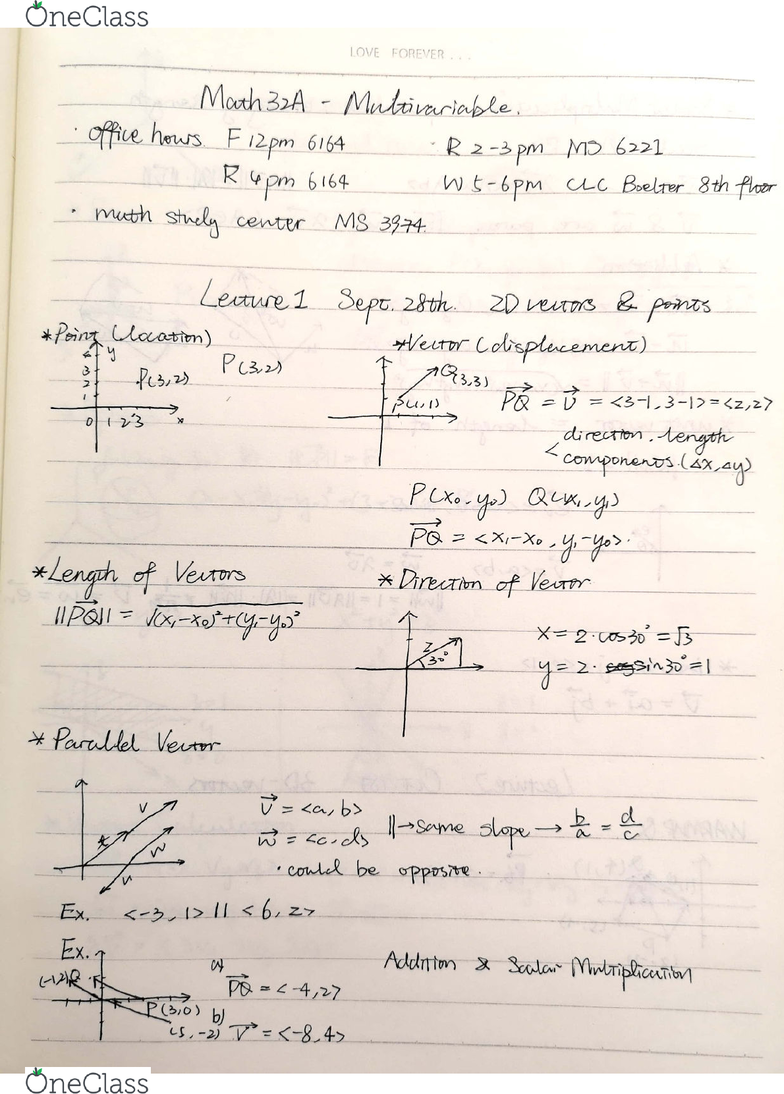 OneClass
LOVE FOREVER...
Math 32A - Multivariable.
· office hours F 12pm 6164 · R 2-3pm MS 6221
R 4pm 6164 W 5-6pm CLC Boelter 8th floor
· math study center MS 3974.
Lecture 1 Sept. 28th. 2D vectors & points
*Point (location)
*Vector (displacement)
y
4
3
2
1
0 1 2 3 x
P(3,2)
P(3,2)
Q(3,3)
P(1,1)
PQ⃗ = v⃗ = <3-1, 3-1> = <2,2>
direction. length
components. (Δx, Δy)
P(x₀, y₀) Q(x₁, y₁)
PQ⃗ = <x₁-x₀, y₁-y₀>.
*Length of Vectors
||PQ⃗|| = √(x₁-x₀)²+(y₁-y₀)²
*Direction of Vector
2
30°
x = 2·cos30° = √3
y = 2·sin30° = 1
* Parallel Vector
v
w
u
v⃗ = <a, b>
w⃗ = <c, d>
|| → same slope → b/a = d/c
· could be opposite.
Ex. <-3, 1> || <6, 2>
Ex.
(-1,2)Q
P(3,0)
(5,-2)
a) PQ⃗ = <-4, 2>
b) v⃗ = <-8, 4>
Addition & Scalar Multiplication
OneClass